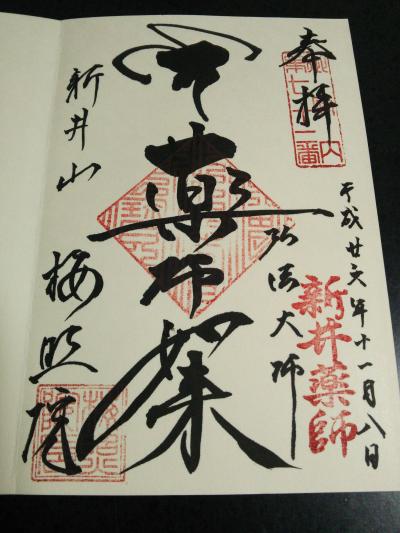 奉拝
平成廿六年十一月八日
新井薬師
弘法大師
薬師如来
新井山
梅照院